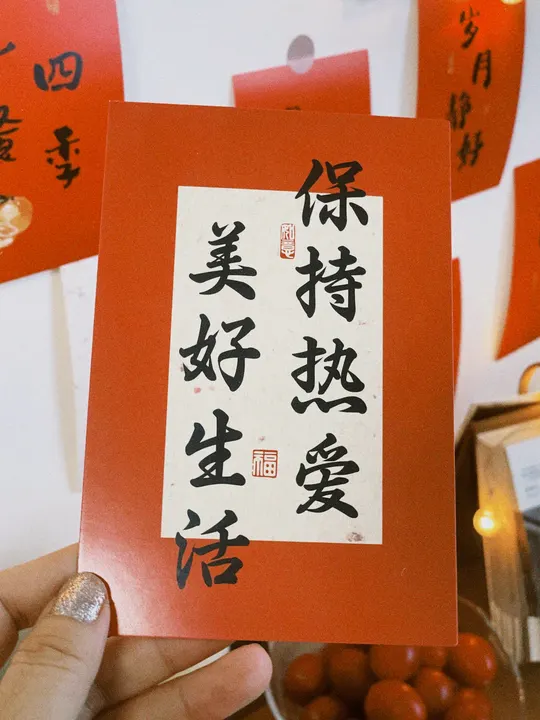 保持热爱
美好生活
福
岁月
静好
四季